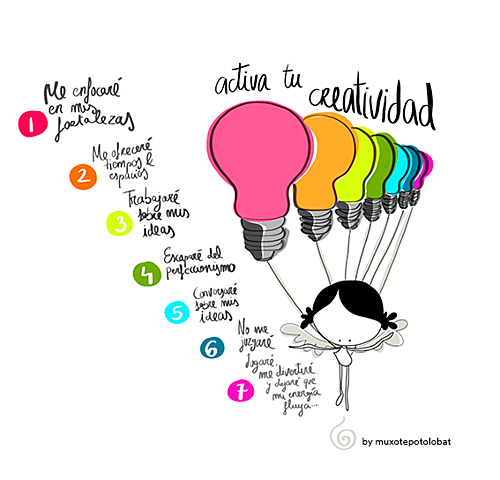 activa tu
creatividad
1
Me enfocaré
en mis
fortalezas
2
Me ofreceré
tiempos &
espacios
3
Trabajaré
sobre mis
ideas
4
Escaparé del
perfeccionismo
5
Conversaré
sobre mis
ideas
6
No me
juzgaré
7
Jugaré,
me divertiré
y dejaré que
mi energía
fluya...
by muxotepotolobat